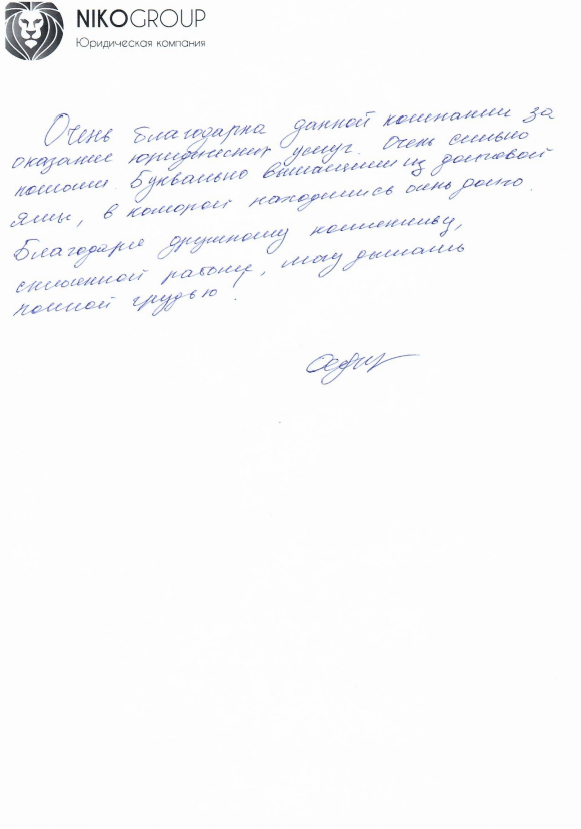 NIKOGROUP
Юридическая компания
Очень благодарна данной компании за
оказание юридических услуг. Очень сильно
помогли. Буквально вытащили из долговой
ямы, в которой находились очень долго.
Благодаря дружному коллективу,
слаженной работе, могу дышать
полной грудью.